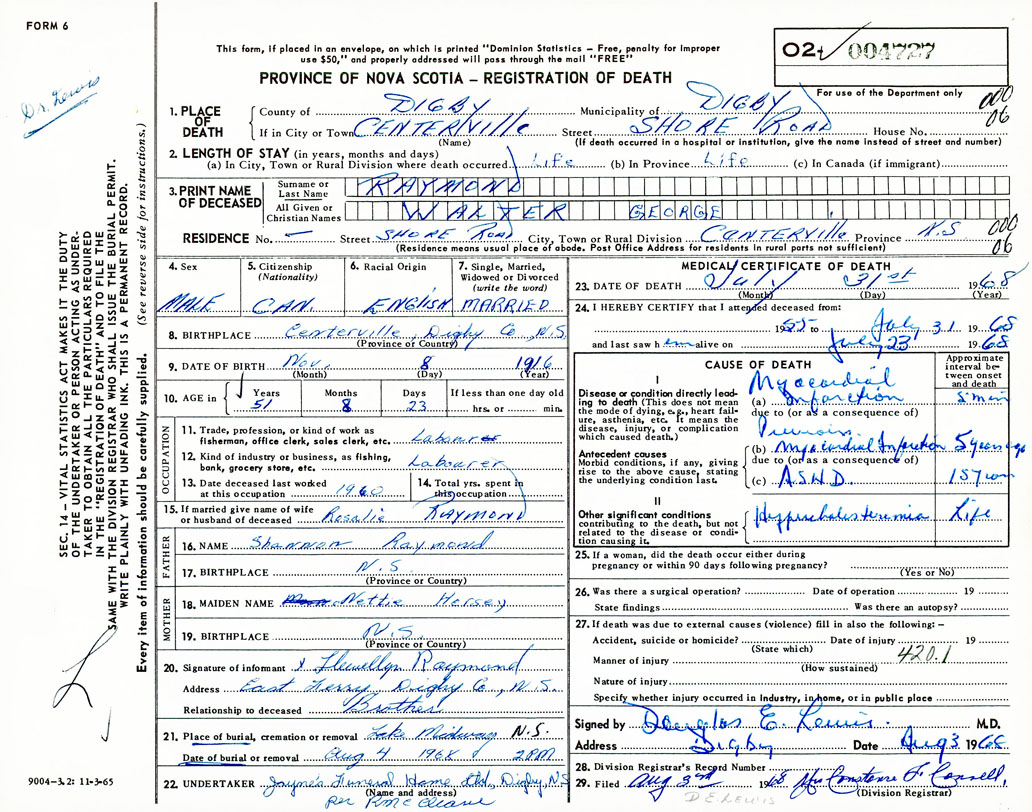 FORM 6
Dr. Lewis
This form, if placed in an envelope, on which is printed "Dominion Statistics – Free, penalty for improper
use $50," and properly addressed will pass through the mail "FREE"
PROVINCE OF NOVA SCOTIA – REGISTRATION OF DEATH
004727
For use of the Department only
000
06
1. PLACE OF DEATH
County of DIGBY Municipality of DIGBY
If in City or Town CENTERVILLE Street SHORE ROAD House No.
(Name) (If death occurred in a hospital or institution, give the name instead of street and number)
2. LENGTH OF STAY (in years, months and days)
(a) In City, Town or Rural Division where death occurred Life (b) In Province Life (c) In Canada (if immigrant)
3. PRINT NAME OF DECEASED
Surname or Last Name RAYMOND
All Given or Christian Names WALTER GEORGE
RESIDENCE No. — Street SHORE ROAD City, Town or Rural Division CANTERVILLE Province N.S
000
06
(Residence means usual place of abode. Post Office Address for residents in rural parts not sufficient)
4. Sex
MALE
5. Citizenship
(Nationality)
CAN.
6. Racial Origin
ENGLISH
7. Single, Married,
Widowed or Divorced
(write the word)
MARRIED
8. BIRTHPLACE Centerville, Digby Co, N.S.
(Province or Country)
9. DATE OF BIRTH Nov. 8 1916
(Month) (Day) (Year)
10. AGE in Years Months Days If less than one day old
51 8 23 hrs. or min.
OCCUPATION
11. Trade, profession, or kind of work as
fisherman, office clerk, sales clerk, etc. Labourer
12. Kind of industry or business, as fishing,
bank, grocery store, etc. Labourer
13. Date deceased last worked
at this occupation 1960
14. Total yrs. spent in
this occupation
15. If married give name of wife
or husband of deceased Rosalie RAYMOND
FATHER
16. NAME Shannon Raymond
17. BIRTHPLACE N.S.
(Province or Country)
MOTHER
18. MAIDEN NAME Nettie Hersey
19. BIRTHPLACE N.S.
(Province or Country)
20. Signature of informant x Llewellyn Raymond
Address East Ferry, Digby Co, N.S.
Relationship to deceased Brother
21. Place of burial, cremation or removal Lake Midway N.S.
Date of burial or removal Aug 4 1968 2 PM
22. UNDERTAKER Jayne's Funeral Home Ltd, Digby, N.S
(Name and address)
per
MEDICAL CERTIFICATE OF DEATH
23. DATE OF DEATH July 31st 1968
(Month) (Day) (Year)
24. I HEREBY CERTIFY that I attended deceased from:
1955 to July 31 1968
and last saw him alive on July 23 1968
CAUSE OF DEATH
Approximate
interval be-
tween onset
and death
I
Disease or condition directly lead-
ing to death (This does not mean
the mode of dying, e.g., heart fail-
ure, asthenia, etc. It means the
disease, injury, or complication
which caused death.)
Myocardial
(a) Infarction 5 min
due to (or as a consequence of)
Antecedent causes
Morbid conditions, if any, giving
rise to the above cause, stating
the underlying condition last.
Previous
(b) Myocardial Infarction 5 years ago
due to (or as a consequence of)
(c) A.S.H.D 15 years
II
Other significant conditions
contributing to the death, but not
related to the disease or condi-
tion causing it.
Hypercholesteremia Life
25. If a woman, did the death occur either during
pregnancy or within 90 days following pregnancy?
(Yes or No)
26. Was there a surgical operation? Date of operation 19
State findings Was there an autopsy?
27. If death was due to external causes (violence) fill in also the following: –
Accident, suicide or homicide? Date of injury 19
(State which)
420.1
Manner of injury
(How sustained)
Nature of injury
Specify whether injury occurred in Industry, in home, or in public place
Signed by Douglas E. Lewis. M.D.
Address Digby Date Aug 3 1968
28. Division Registrar's Record Number
29. Filed Aug 3rd 1968 Mrs Constance F. Connell,
(Division Registrar)
D E LEWIS
SEC. 14 – VITAL STATISTICS ACT MAKES IT THE DUTY
OF THE UNDERTAKER OR PERSON ACTING AS UNDER-
TAKER TO OBTAIN ALL THE PARTICULARS REQUIRED
IN THE "REGISTRATION OF DEATH" AND TO FILE THE
SAME WITH THE DIVISION REGISTRAR WHO SHALL ISSUE THE BURIAL PERMIT.
WRITE PLAINLY WITH UNFADING INK. THIS IS A PERMANENT RECORD.
Every item of information should be carefully supplied. (See reverse side for instructions.)
9004-3.2: 11-3-65